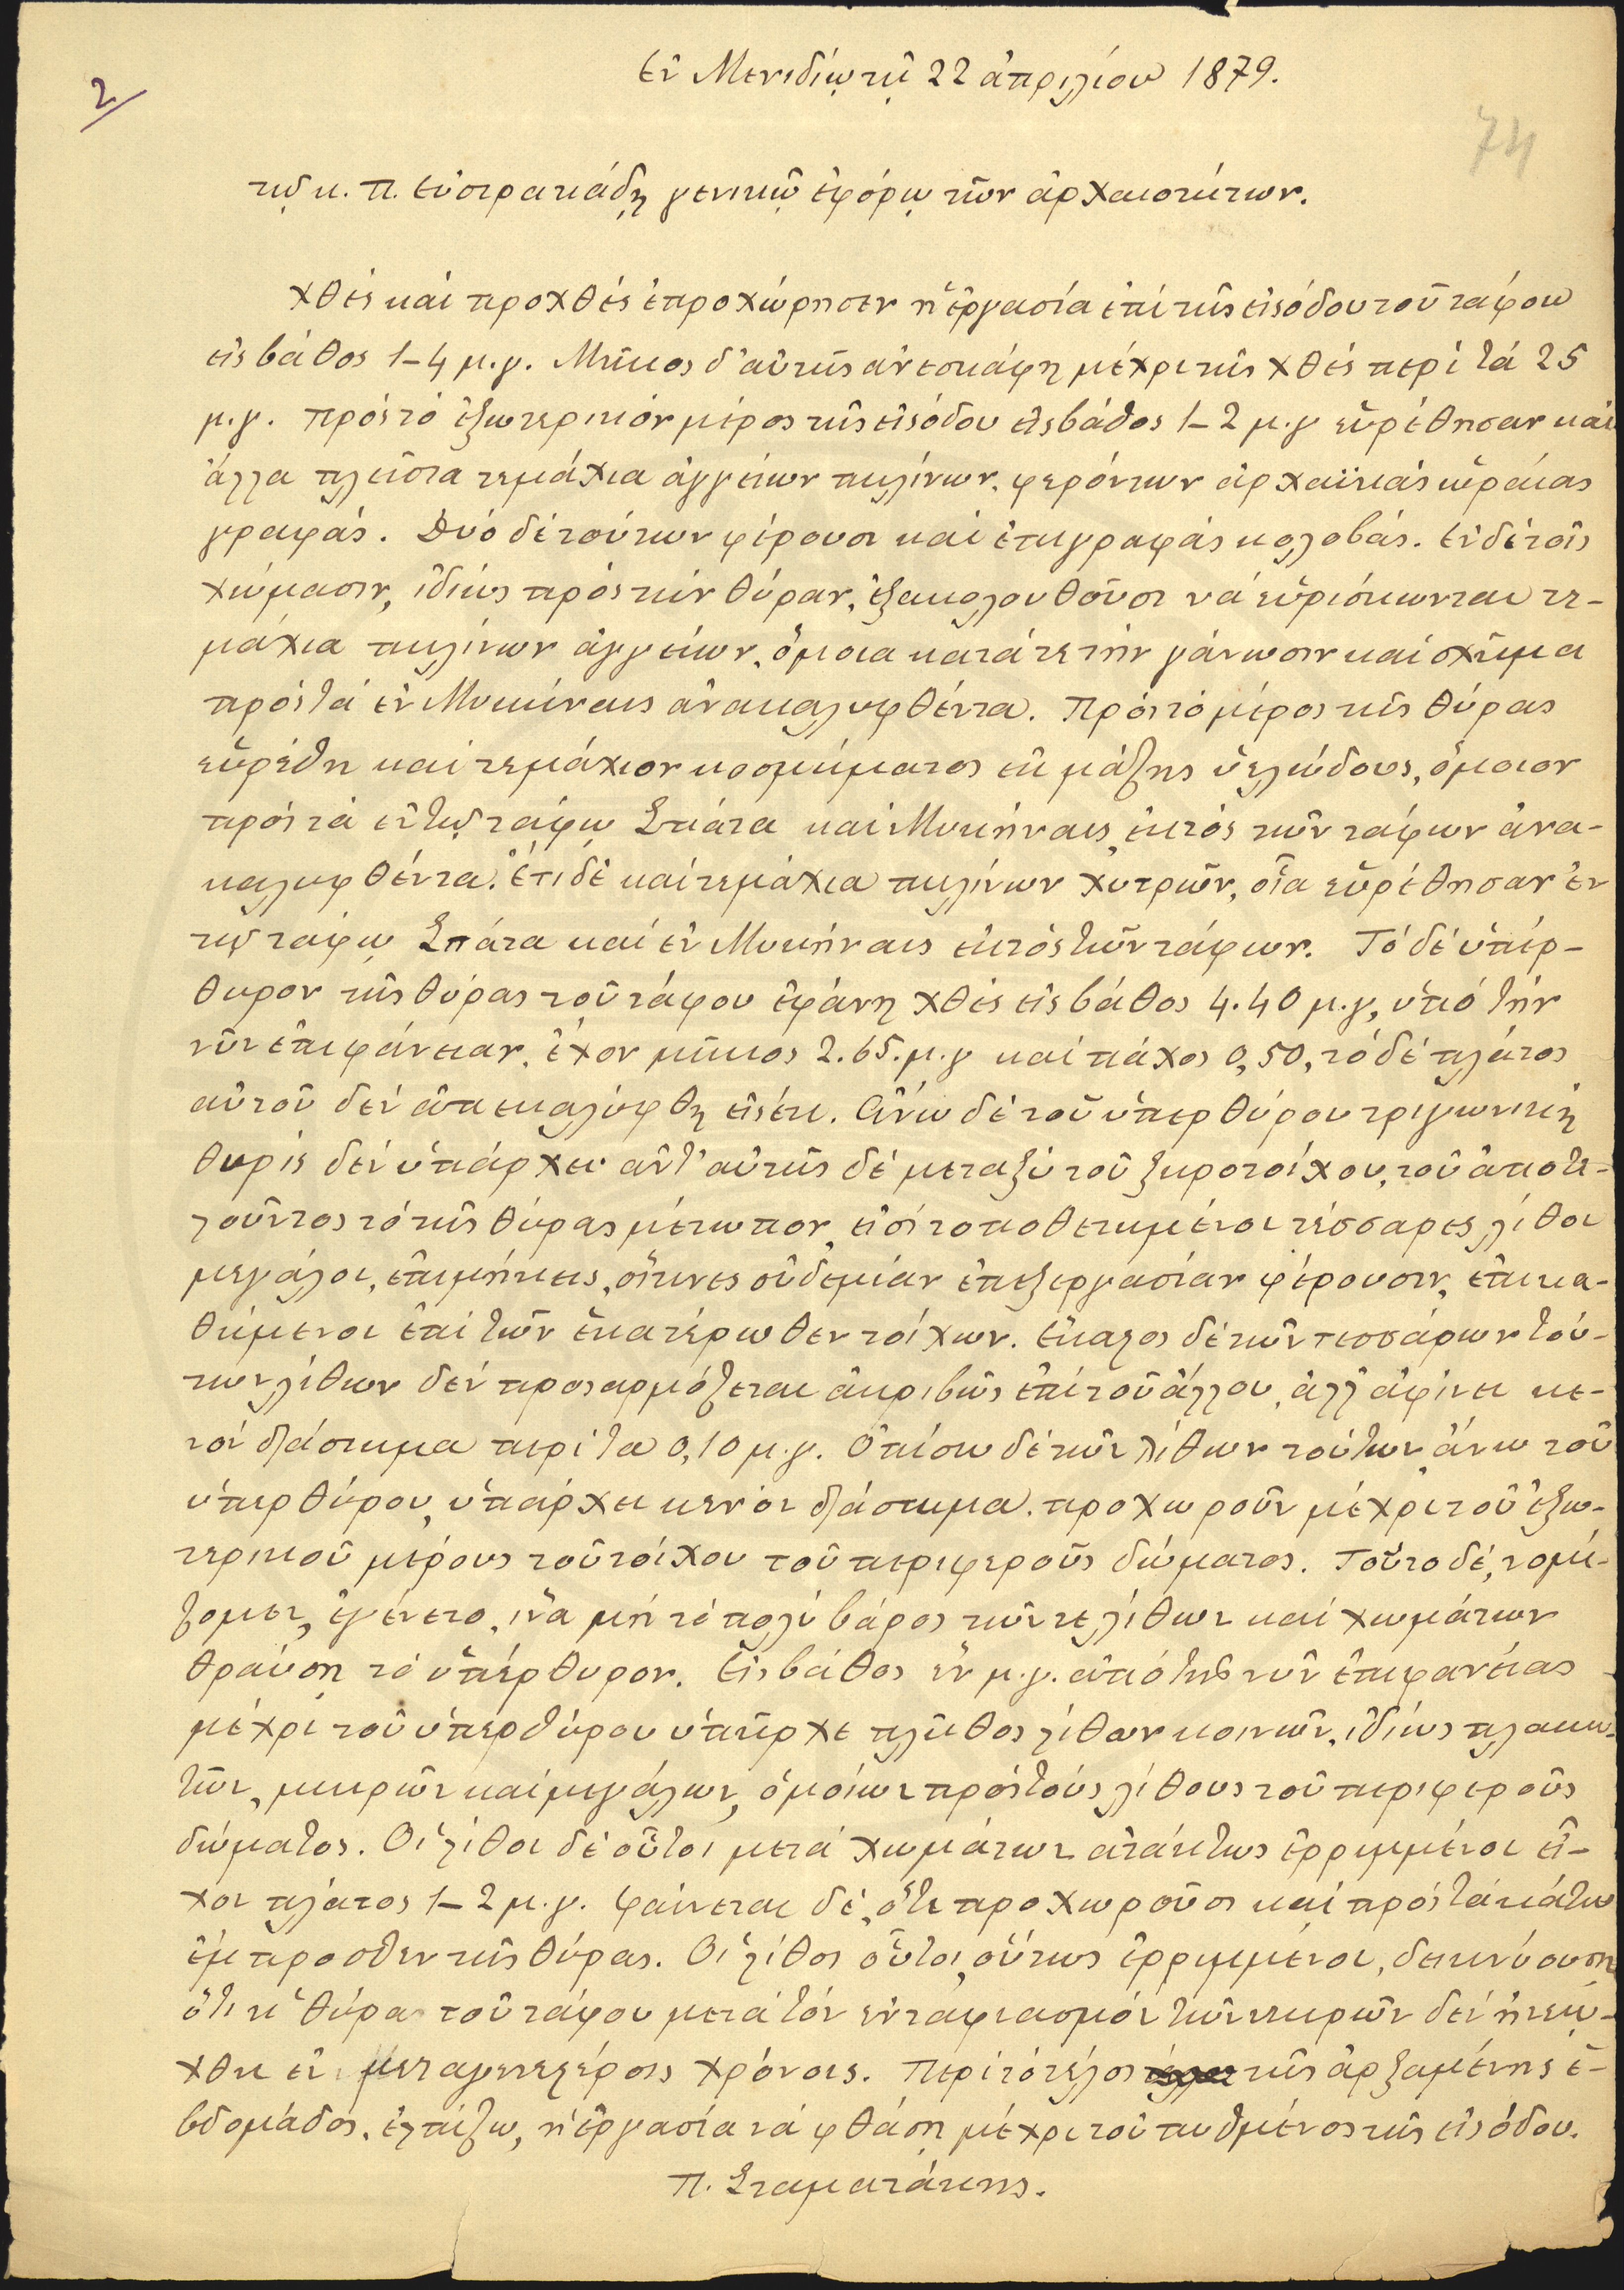 2
74
Ἐν Μενιδίῳ τῇ 22 ἀπριλίου 1879.
τῷ κ. Π. Εὐστρατιάδῃ γενικῷ ἐφόρῳ τῶν ἀρχαιοτήτων.
Χθές καί προχθές ἐπροχώρησεν ἡ ἐργασία ἐπί τῆς εἰσόδου τοῦ τάφου
εἰς βάθος 1-4 μ.γ. Μῆκος δ' αὐτῆς ἀνεσκάφη μέχρι τῆς χθές περί τά 25
μ.γ. πρός τό ἐξωτερικόν μέρος τῆς εἰσόδου εἰς βάθος 1-2 μ.γ εὑρέθησαν καί
ἄλλα πλεῖστα τεμάχια ἀγγείων πηλίνων, φερόντων ἀρχαϊκάς ὡραίας
γραφάς. Δύο δέ τούτων φέρουσι καί ἐπιγραφάς κολοβάς. Ἐν δέ τοῖς
χώμασιν, ἰδίως πρός τήν θύραν, ἐξακολουθοῦσι νά εὑρίσκωνται τε-
μάχια πηλίνων ἀγγείων, ὅμοια κατά τε τήν γάνωσιν καί σχῆμα
πρός τά ἐν Μυκήναις ἀνακαλυφθέντα. Πρός τό μέρος τῆς θύρας
εὑρέθη καί τεμάχιον κοσμήματος ἐκ μάζης ὑελώδους, ὅμοιον
πρός τά ἐν τῷ τάφῳ Σπάτα καί Μυκήναις, ἐκτός τῶν τάφων ἀνα-
καλυφθέντα. Ἔτι δέ καί τεμάχια πηλίνων χυτρῶν, οἷα εὑρέθησαν ἐν
τῷ τάφῳ Σπάτα καί ἐν Μυκήναις ἐκτός τῶν τάφων. Τό δέ ὑπέρ-
θυρον τῆς θύρας τοῦ τάφου ἐφάνη χθές εἰς βάθος 4.40 μ.γ, ὑπό τήν
νῦν ἐπιφάνειαν, ἔχον μῆκος 2.65. μ.γ καί πάχος 0,50, τό δέ πλάτος
αὐτοῦ δέν ἀπεκαλύφθη εἰσέτι. Ἄνω δέ τοῦ ὑπερθύρου τριγωνική
θυρίς δέν ὑπάρχει ἀντ' αὐτῆς δέ μεταξύ τοῦ ξηροτοίχου, τοῦ ἀποτε-
λοῦντος τό τῆς θύρας μέτωπον, εἰσί τοποθετημένοι τέσσαρες λίθοι
μεγάλοι, ἐπιμήκεις, οἵτινες οὐδεμίαν ἐπεξεργασίαν φέρουσιν, ἐπικα-
θήμενοι ἐπί τῶν ἑκατέρωθεν τοίχων. Ἕκαστος δέ τῶν τεσσάρων τού-
των λίθων δέν προσαρμόζεται ἀκριβῶς ἐπί τοῦ ἄλλου, ἀλλ' ἀφίνει κε-
νόν διάστημα περί τα 0,10 μ.γ. Ὀπίσω δέ τῶν λίθων τούτων ἄνω τοῦ
ὑπερθύρου, ὑπάρχει κενόν διάστημα, προχωροῦν μέχρι τοῦ ἐξω-
τερικοῦ μέρους τοῦ τοίχου τοῦ περιφεροῦς δώματος. Τοῦτο δέ, νομί-
ζομεν, ἐγένετο, ἵνα μή τό πολύ βάρος τῶν τε λίθων καί χωμάτων
θραύσῃ τό ὑπέρθυρον. Εἰς βάθος ἑν μ.γ. ἀπό τῆς νῦν ἐπιφανείας
μέχρι τοῦ ὑπερθύρου ὑπῆρχε πλῆθος λίθων κοινῶν, ἰδίως πλακω-
τῶν, μικρῶν καί μεγάλων, ὁμοίων πρός τούς λίθους τοῦ περιφεροῦς
δώματος. Οἱ λίθοι δέ οὗτοι μετά χωμάτων ἀτάκτως ἐρριμμένοι εἶ-
χον πλάτος 1-2 μ.γ. φαίνεται δέ, ὅτι προχωροῦσι καί πρός τά κάτω
ἔμπροσθεν τῆς θύρας. Οἱ λίθοι οὗτοι, οὕτως ἐρριμμένοι, δεικνύουσιν
ὅτι ἡ θύρα τοῦ τάφου μετά τόν ἐνταφιασμόν τῶν νεκρῶν δέν ἠνεῴ-
χθη ἐν μεταγενεστέροις χρόνοις. Περί τό τέλος τῆς ἀρξαμένης ἑ-
βδομάδος, ἐλπίζω, ἡ ἐργασία νά φθάσῃ μέχρι τοῦ πυθμένος τῆς εἰσόδου.
Π. Σταματάκης.